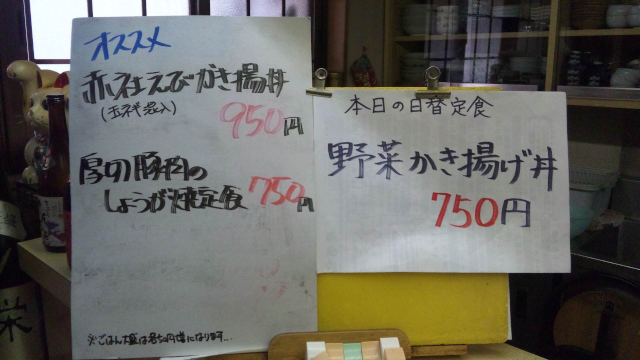 オススメ
赤社えびかき揚丼
950円
厚切豚肉の
しょうが焼定食 750円
※ごはん大盛は
円増になります…
本日の日替定食
野菜かき揚げ丼
750円
栄